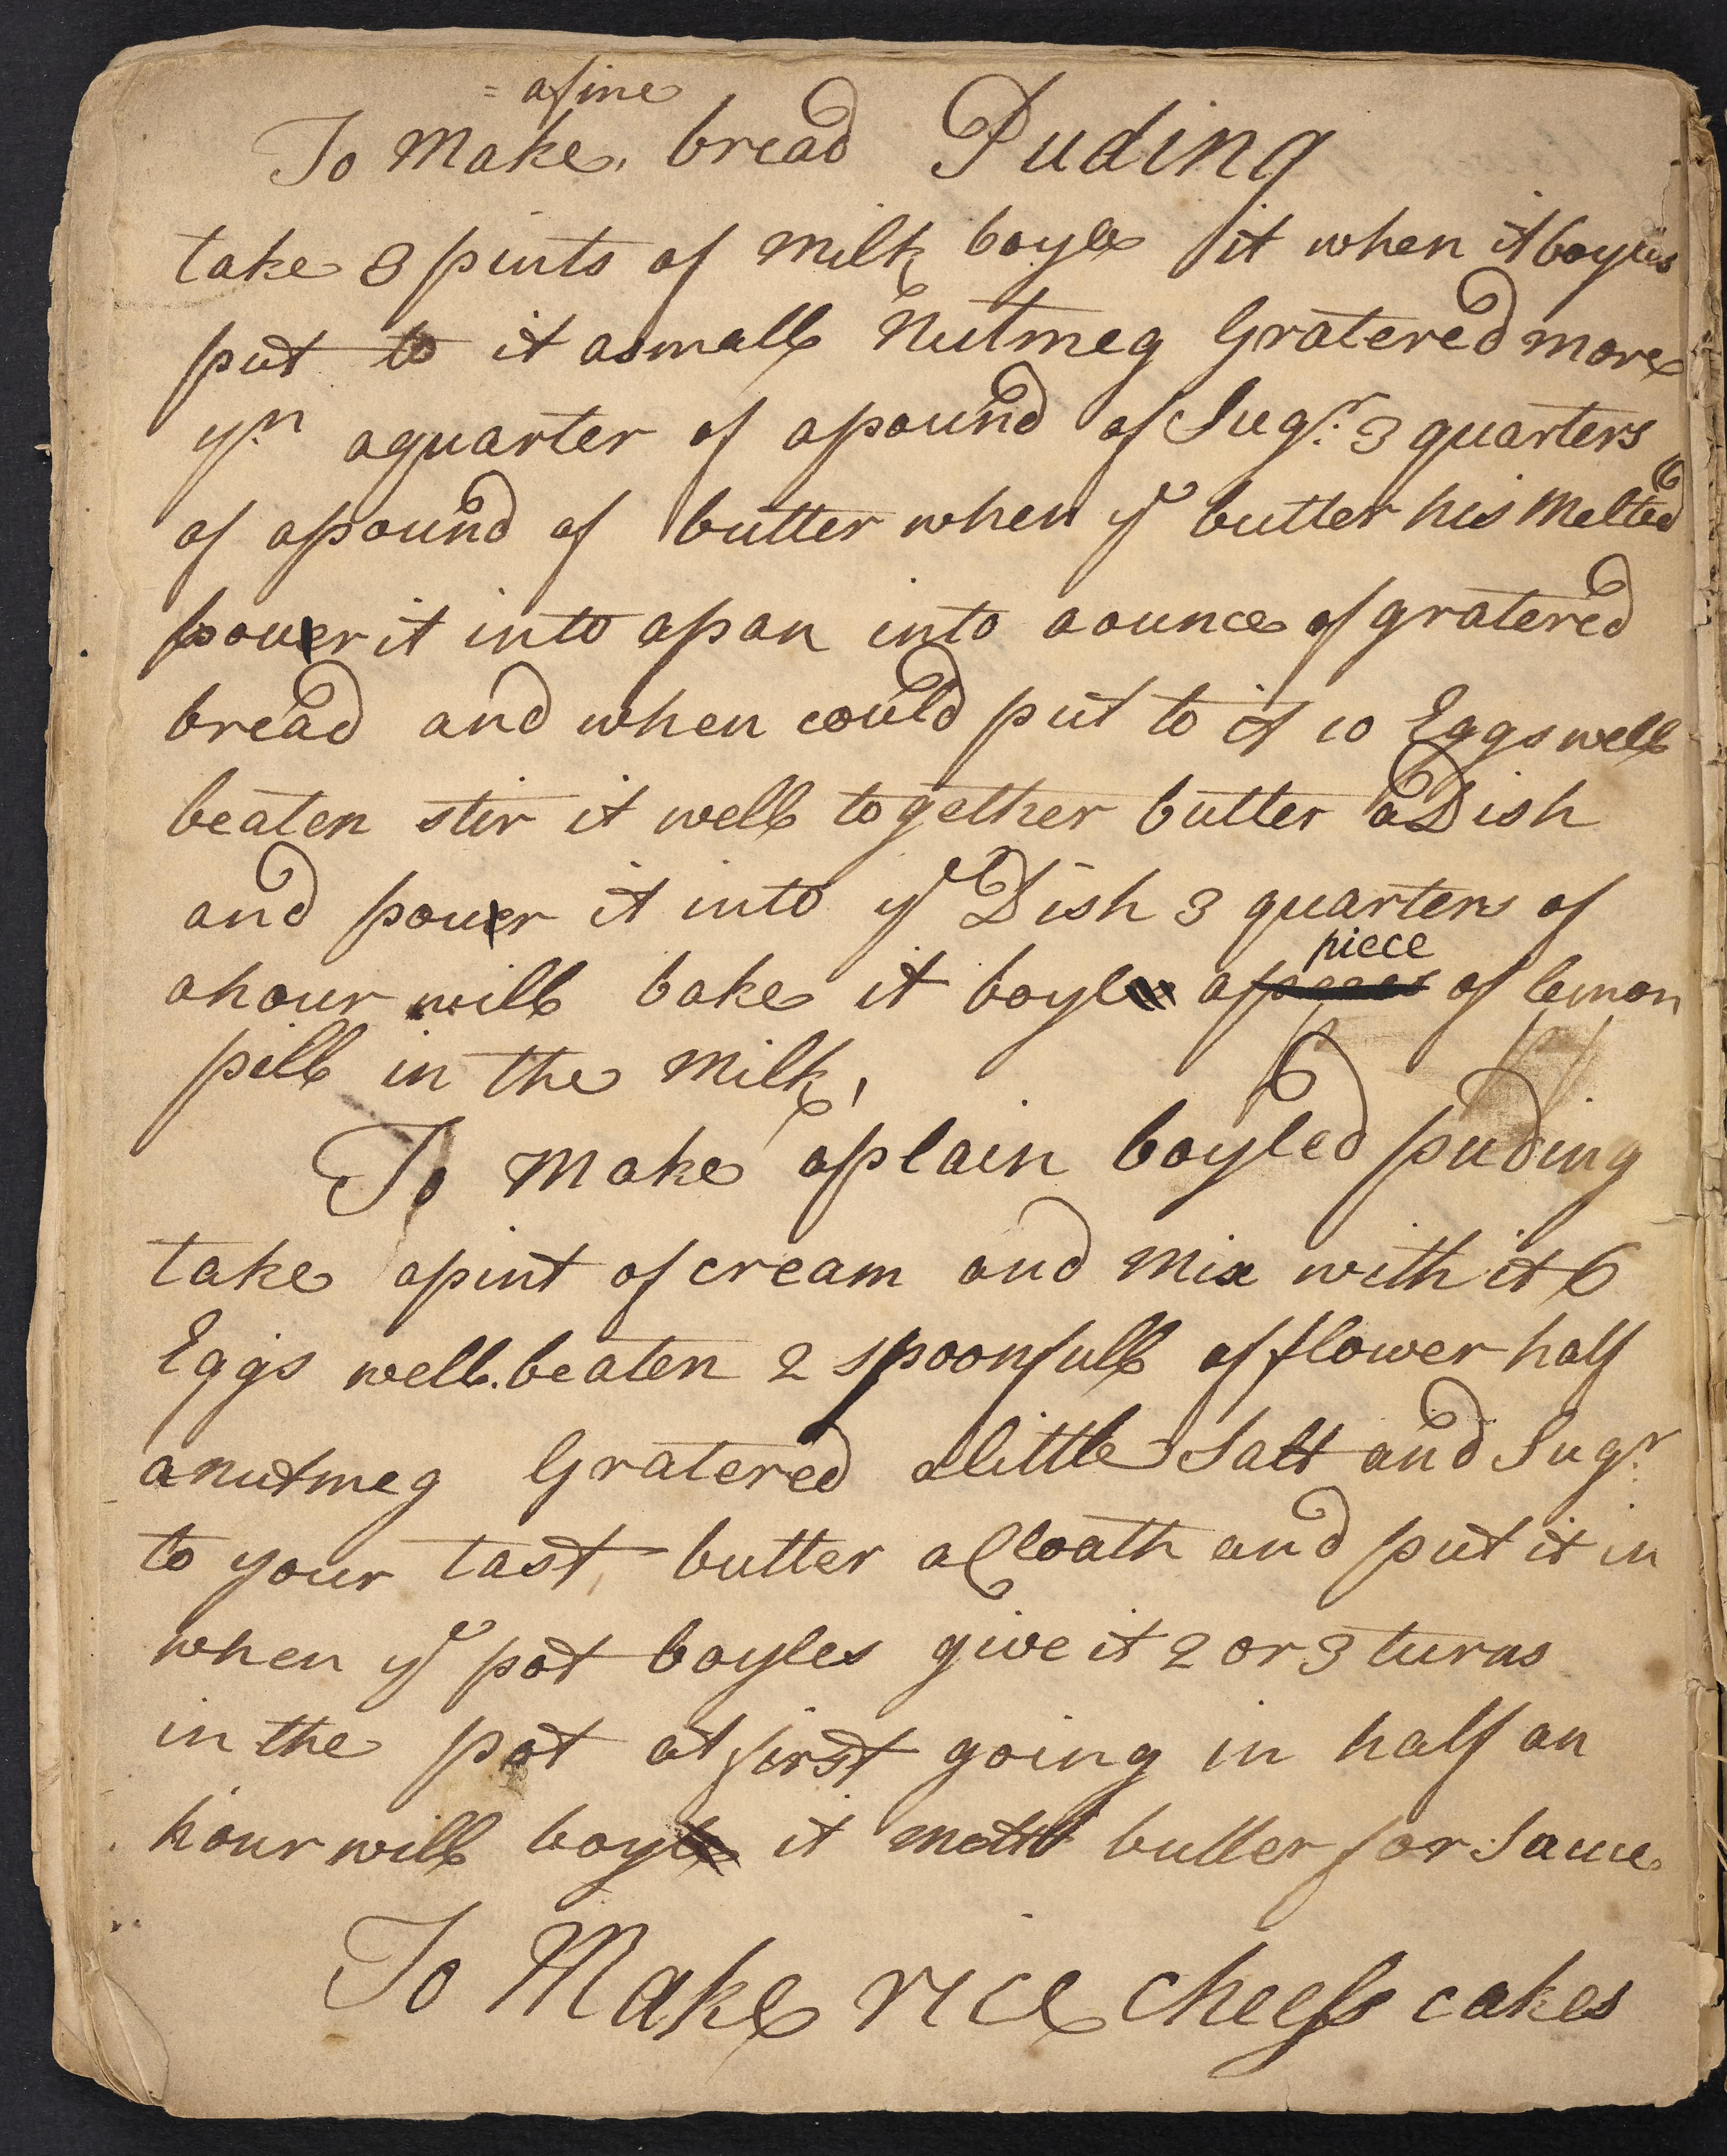 = a fine
To Make, bread Puding
take 3 pints of milk boyle it when it boyles
put to it a small Nutmeg Gratered more
yn a quarter of a pound of Sugr. 3 quarters
of a pound of butter when ye butter his Melted
pouer it into a pan into a ounce of gratered
bread and when could put to it 10 Eggs well
beaten stir it well together butter a Dish
and pouer it into ye Dish 3 quarters of
piece
a hour will bake it boyl a of lemon
pill in the Milk,
To Make a plain boyled puding
take a pint of cream and Mix with it 6
Eggs well beaten 2 spoonfull of flower half
a nutmeg Gratered a little Salt and Sugr.
to your tast, butter a Cloath and put it in
when ye pot boyles give it 2 or 3 turns
in the pot at first going in half an
hour will boyl it butter for Sauce
To Make rice cheess cakes